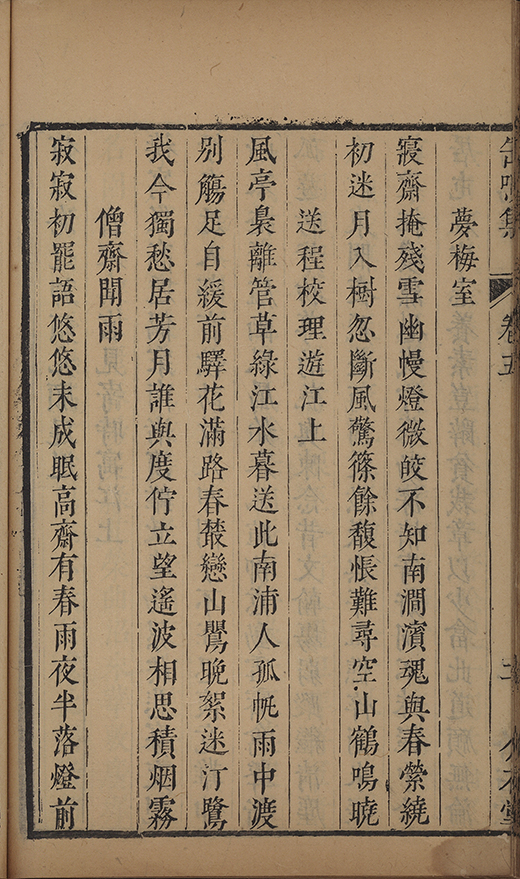 缶鳴集 卷五 二
夢梅室
寢齋掩殘雪幽慢燈微皎不知南澗濱魂與春縈繞
初迷月入樹忽斷風驚篠餘馥悵難尋空山鶴鳴曉
送程校理遊江上
風亭裊離管草綠江水暮送此南浦人孤帆雨中渡
別觴足自緩前驛花滿路春藂戀山鸎晚絮迷汀鷺
我今獨愁居芳月誰與度佇立望遙波相思積烟霧
僧齋聞雨
寂寂初罷語悠悠未成眠高齋有春雨夜半落燈前